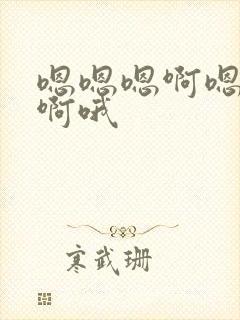 嗯嗯嗯啊嗯
啊哦
寒武珊